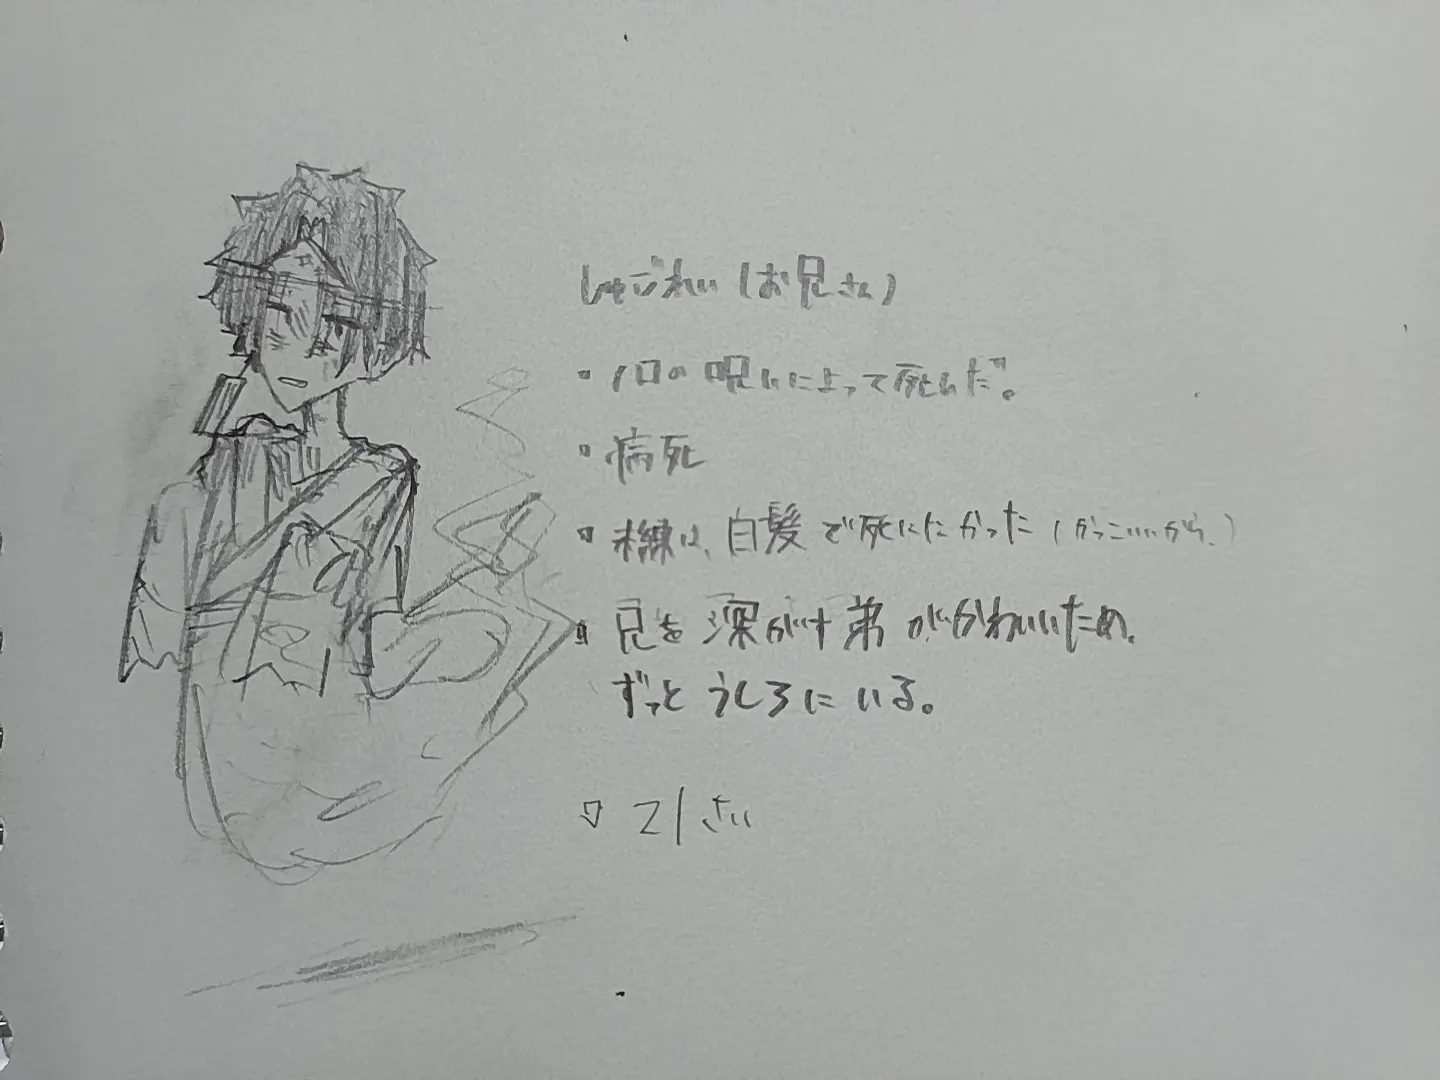 しゅごれい(お兄さん)
・1日の呪いによって死んだ。
・病死
・未練は、白髪で死にたかった(かっこいいから、)
・兄を深がす弟がかわいいため、
ずっとうしろにいる。
・21さい